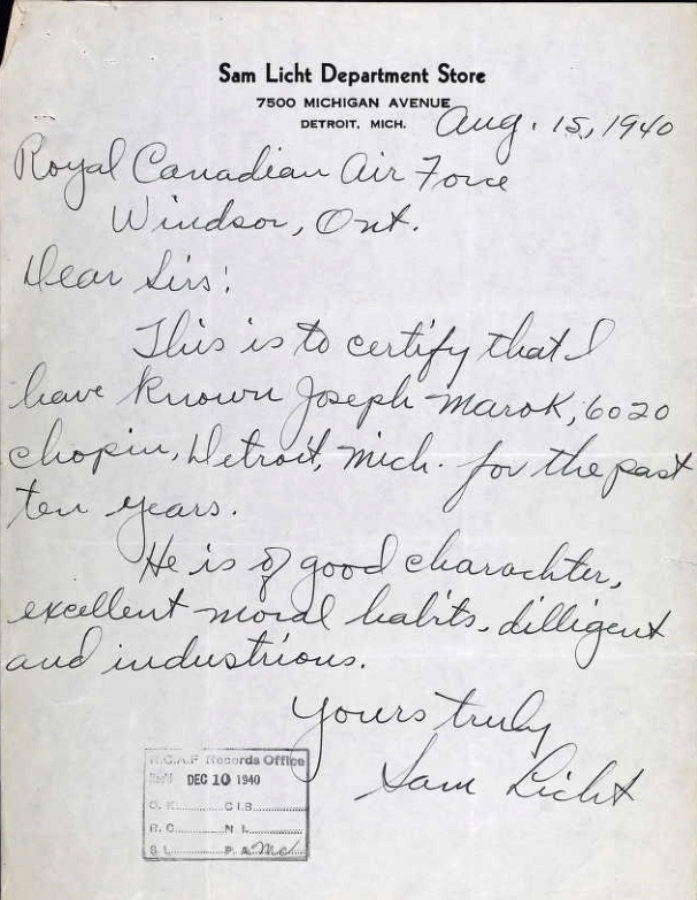 Sam Licht Department Store
7500 MICHIGAN AVENUE
DETROIT, MICH.
Aug. 15, 1940
Royal Canadian Air Force
Windsor, Ont.
Dear Sirs:
This is to certify that I
have known Joseph Marok, 6020
Chopin, Detroit, Mich. for the past
ten years.
He is of good charachter,
excellent moral habits, dilligent
and industrious.
Yours truly
Sam Licht
R.C.A.F Records Office
Rec'd DEC 10 1940
O. K. C I B
R. C. N I.
S L P. A. Mc